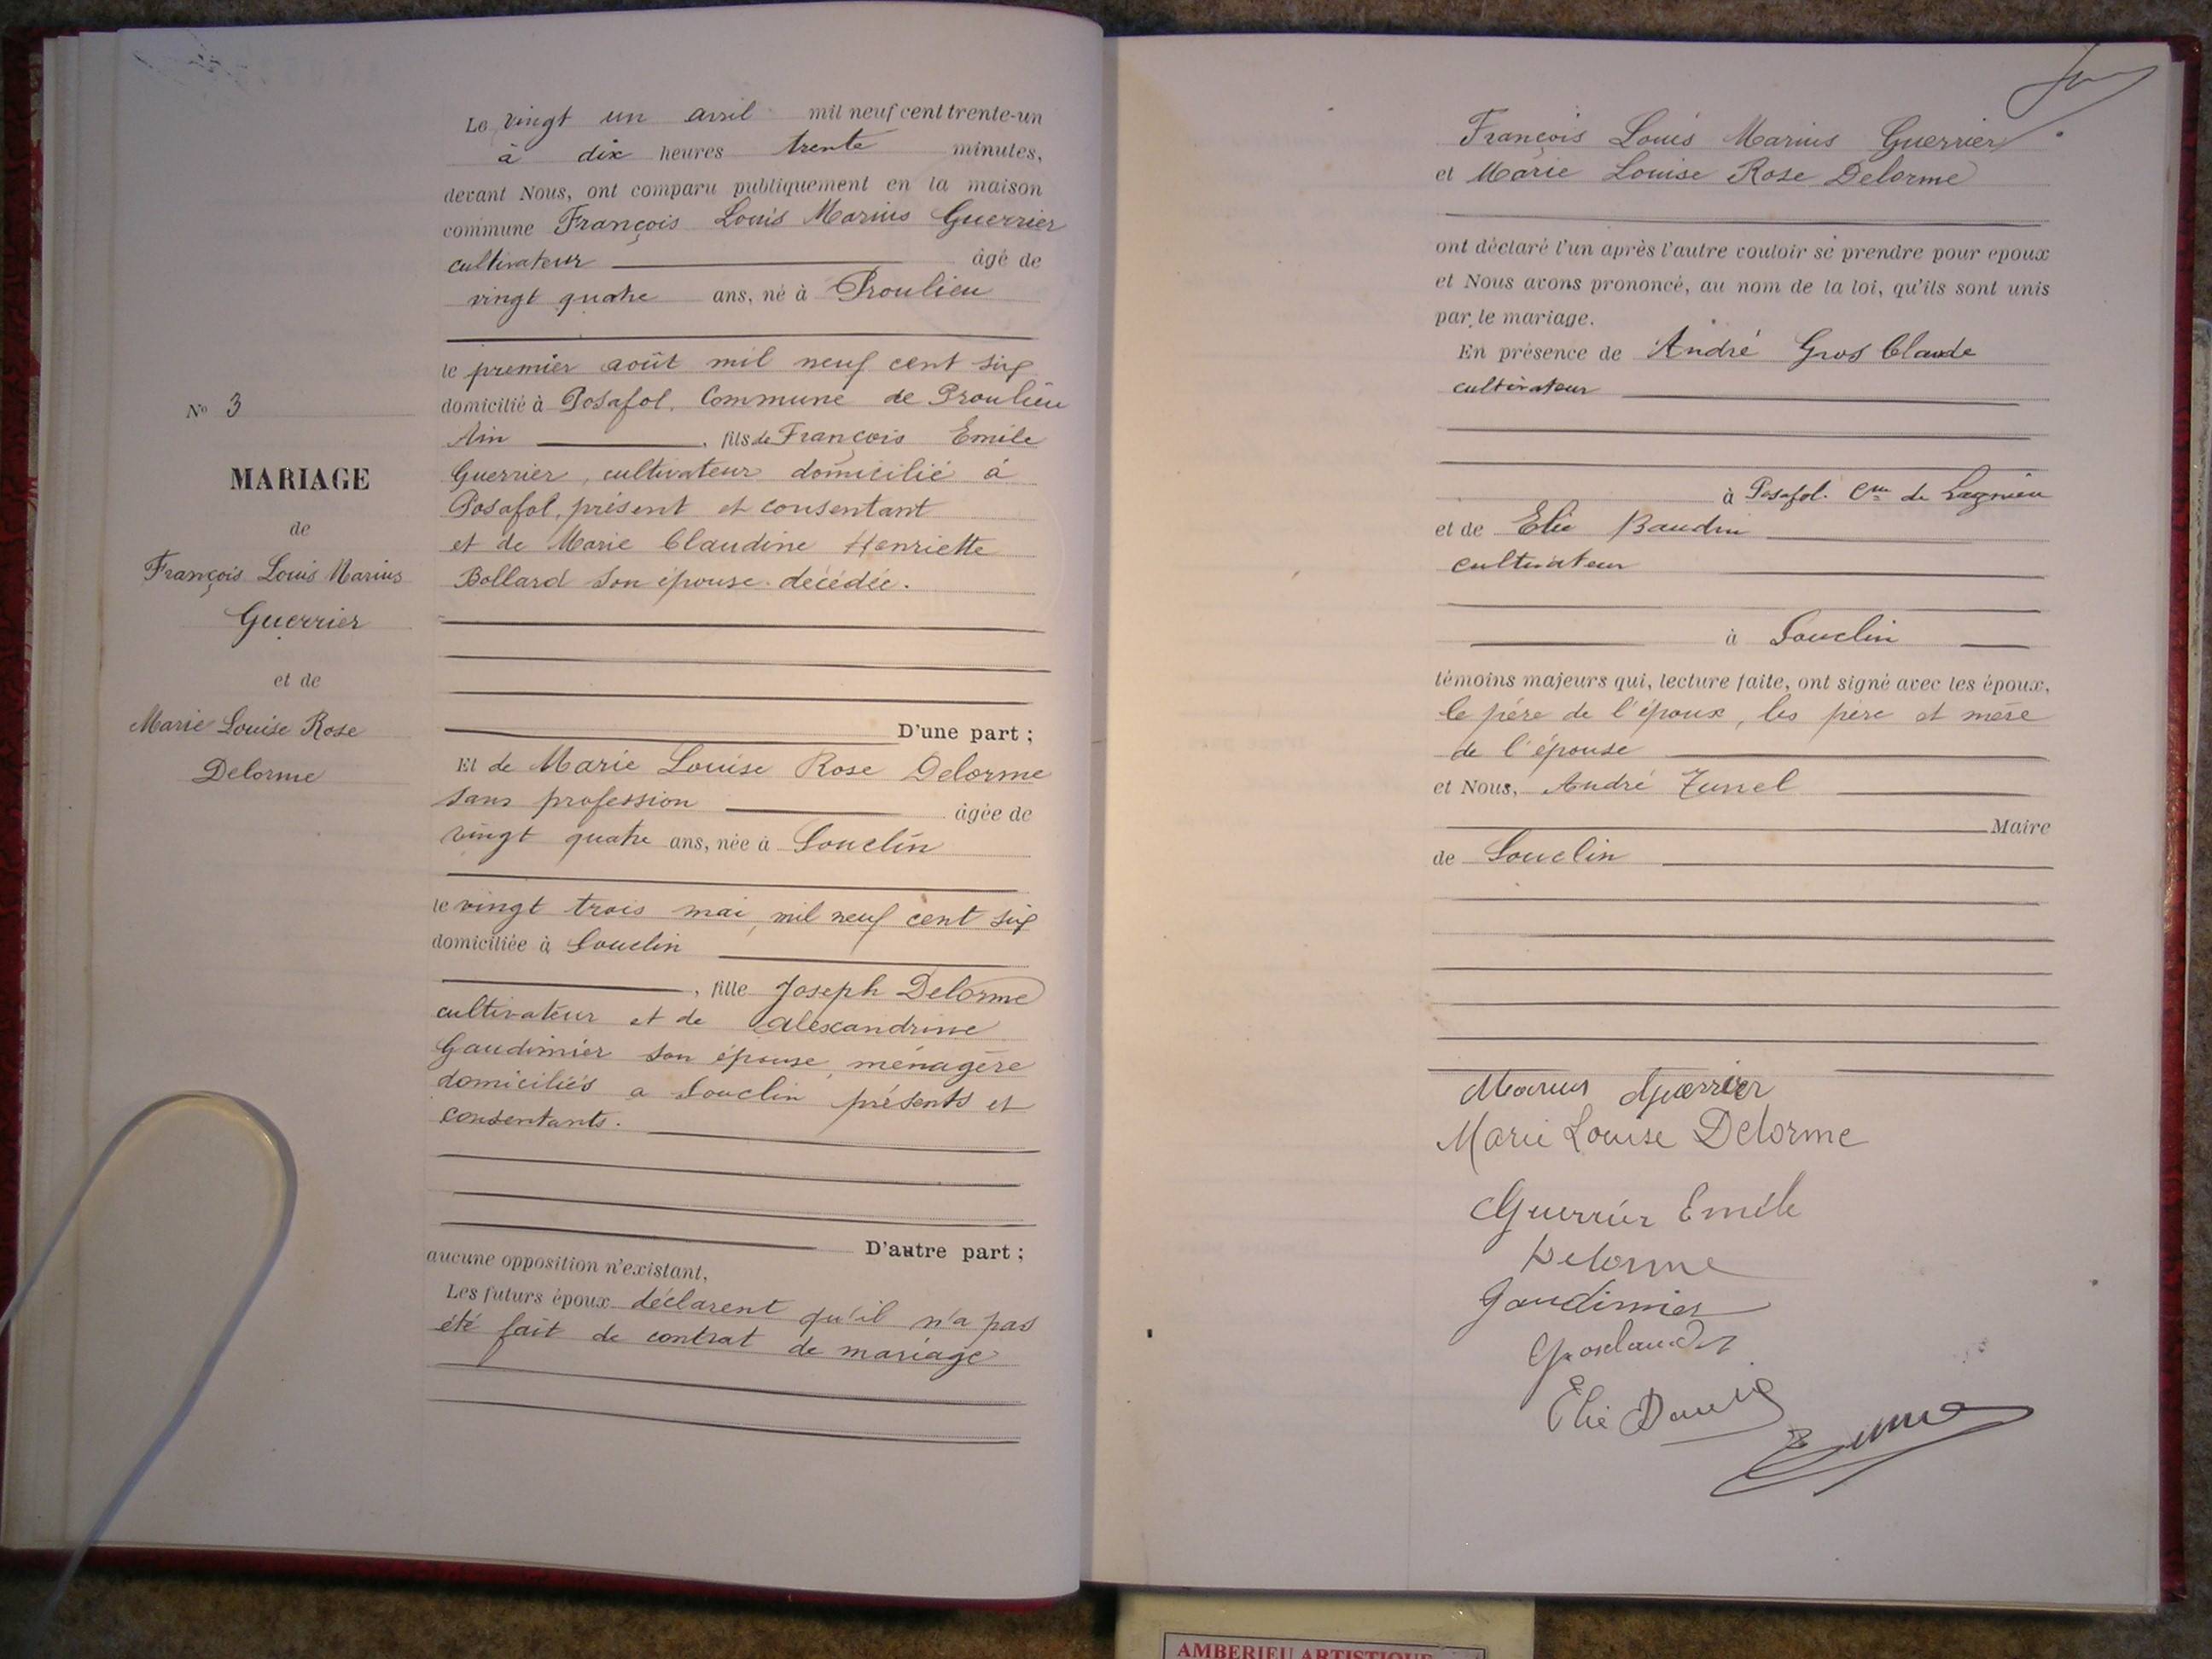 Le vingt un avril mil neuf cent trente-un
à dix heures trente minutes,
devant Nous, ont comparu publiquement en la maison
commune François Louis Marius Guerrier
cultivateur âgé de
vingt quatre ans, né à Proulieu
le premier août mil neuf cent six
domicilié à Posafol. Commune de Proulieu
Ain , fils de François Emile
Guerrier, cultivateur domicilié à
Posafol, présent et consentant
et de Marie Claudine Henriette
Bollard son épouse décédée.
D'une part ;
Et de Marie Louise Rose Delorme
sans profession âgée de
vingt quatre ans, née à Souclin
le vingt trois mai, mil neuf cent six
domiciliée à Souclin
, fille Joseph Delorme
cultivateur et de Alexandrine
Gaudimier son épouse, ménagère
domiciliés a Souclin présents et
consentants.
D'autre part ;
aucune opposition n'existant,
Les futurs époux déclarent qu'il n'a pas
été fait de contrat de mariage
N° 3
MARIAGE
de
François Louis Marius
Guerrier
et de
Marie Louise Rose
Delorme
François Louis Marius Guerrier
et Marie Louise Rose Delorme
ont déclaré l'un après l'autre vouloir se prendre pour epoux
et Nous avons prononcé, au nom de la loi, qu'ils sont unis
par le mariage.
En présence de André Gros Claude
cultivateur
à Posafol. Cne de Lagnieu
et de Elie Baudin
cultivateur
à Souclin
témoins majeurs qui, lecture faite, ont signé avec les époux,
le père de l'époux, les père et mère
de l'épouse
et Nous, André Zunel
Maire
de Souclin
Marius Guerrier
Marie Louise Delorme
Guerrier Emile
Delorme
Gaudimier
Grosclaude
Elie
AMBERIEU ARTISTIQUE